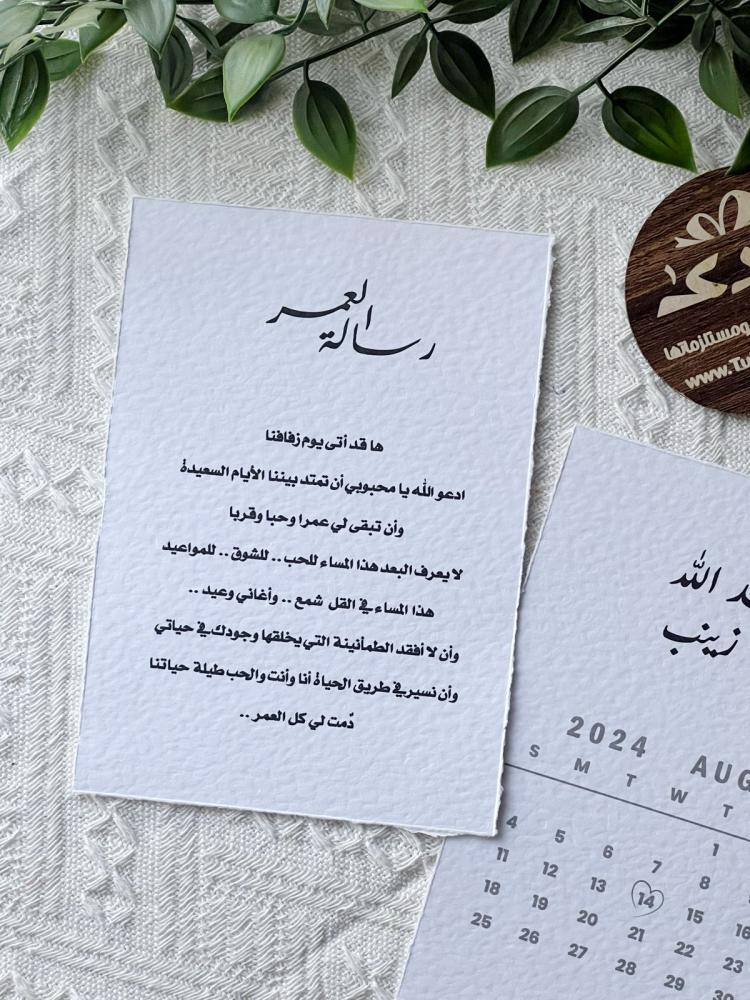 رسالة العمر
ها قد أتى يوم زفافنا
ادعو الله يا محبوبي أن تمتد بيننا الأيام السعيدة
وأن تبقى لي عمرا وحبا وقربا
لا يعرف البعد هذا المساء للحب.. للشوق .. للمواعيد
هذا المساء في القل شمع .. وأغاني وعيد ..
وأن لا أفقد الطمأنينة التي يخلقها وجودك في حياتي
وأن نسير في طريق الحياة أنا وأنت والحب طيلة حياتنا
دُمت لي كل العمر ..
ومستلزماتها
www.Tu
الله
زينب
2024 AUG
S M T W T
1
4 5 6 7 8
11 12 13 14 15 16
18 19 20 21 22 23
25 26 27 28 29 30